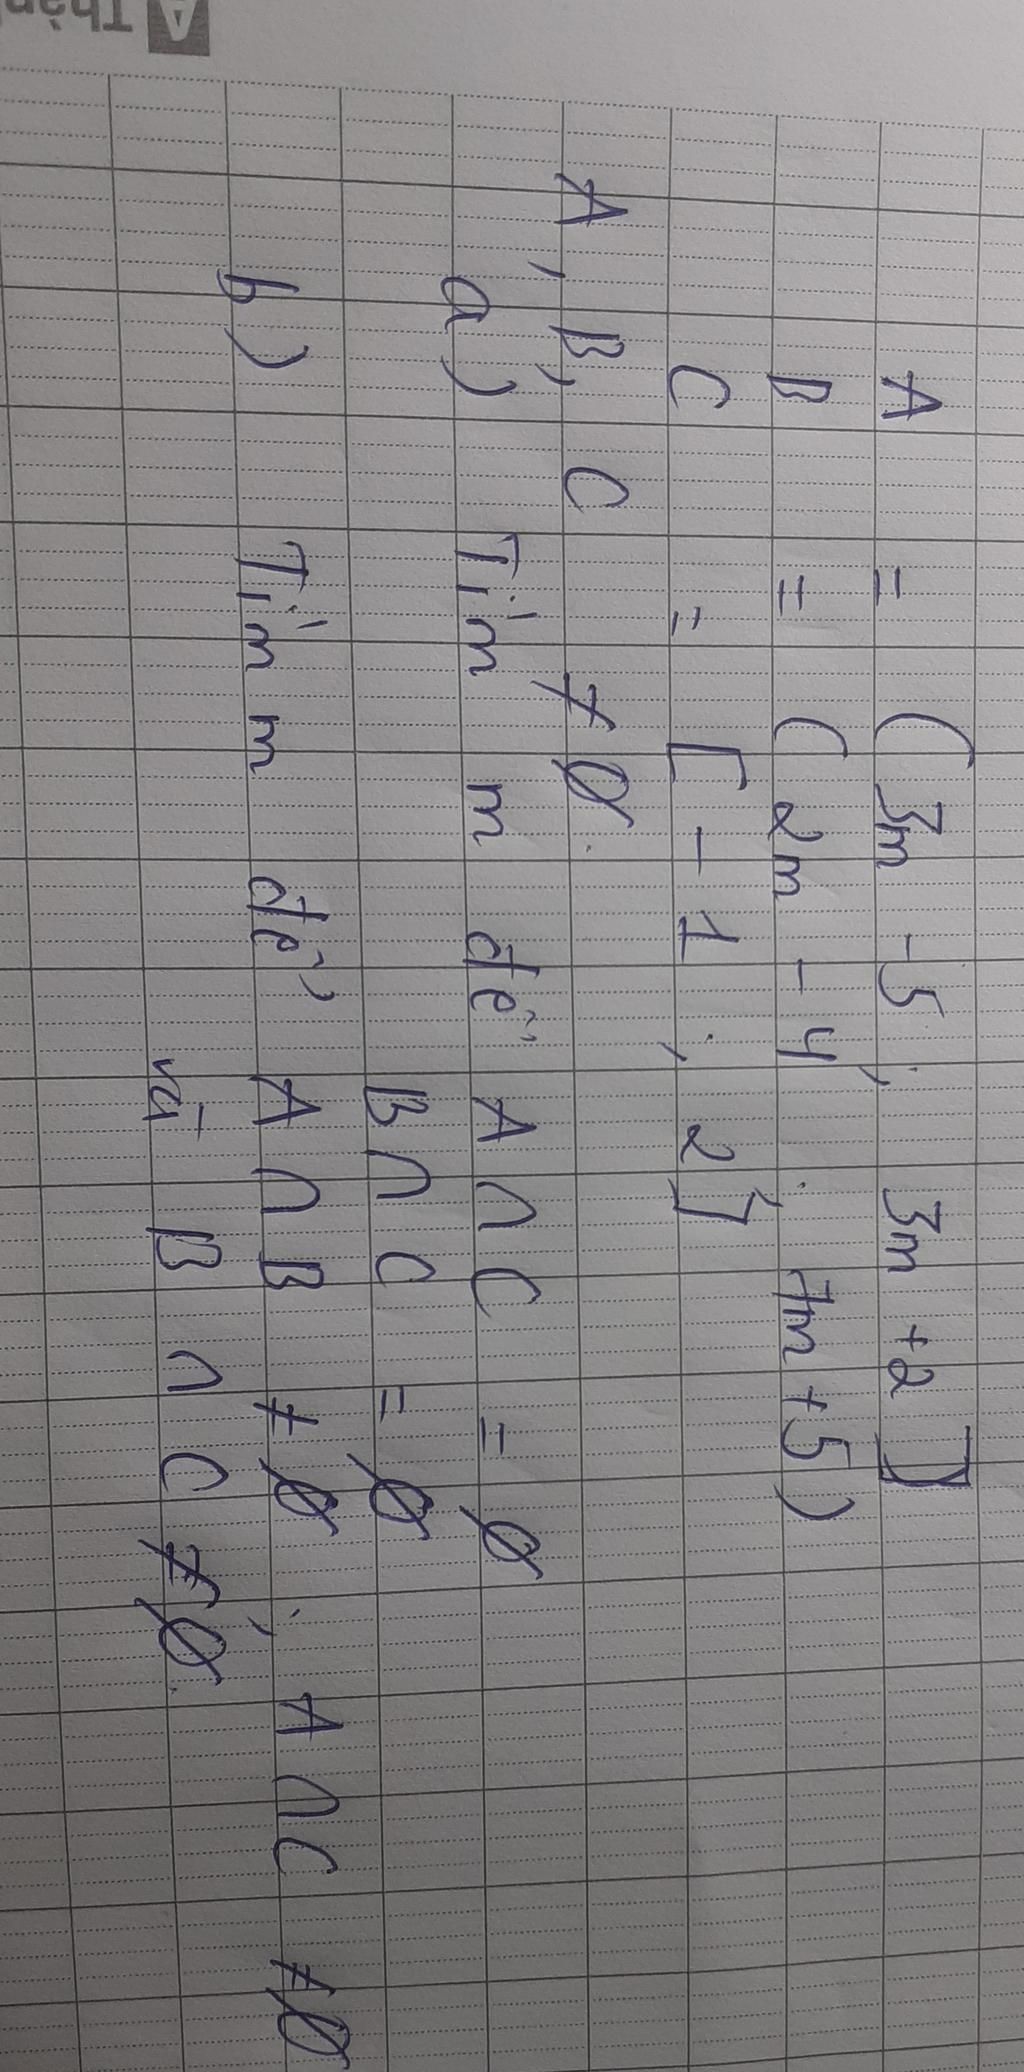 A = (3m - 5 ; 3m + 2]
B = (2m - 4 ; 7m + 5)
C = [-1 ; 2]
A, B, C ≠ Ø.
a) Tìm m để A ∩ C = Ø
B ∩ C = Ø
b) Tìm m để A ∩ B ≠ Ø ; A ∩ C ≠ Ø
và B ∩ C ≠ Ø.